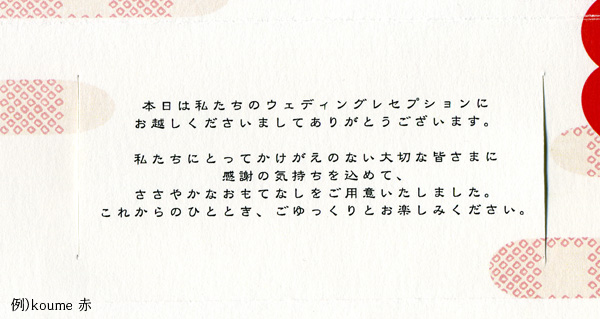 本日は私たちのウェディングレセプションに
お越しくださいましてありがとうございます。
私たちにとってかけがえのない大切な皆さまに
感謝の気持ちを込めて、
ささやかなおもてなしをご用意いたしました。
これからのひととき、ごゆっくりとお楽しみください。
例)koume 赤